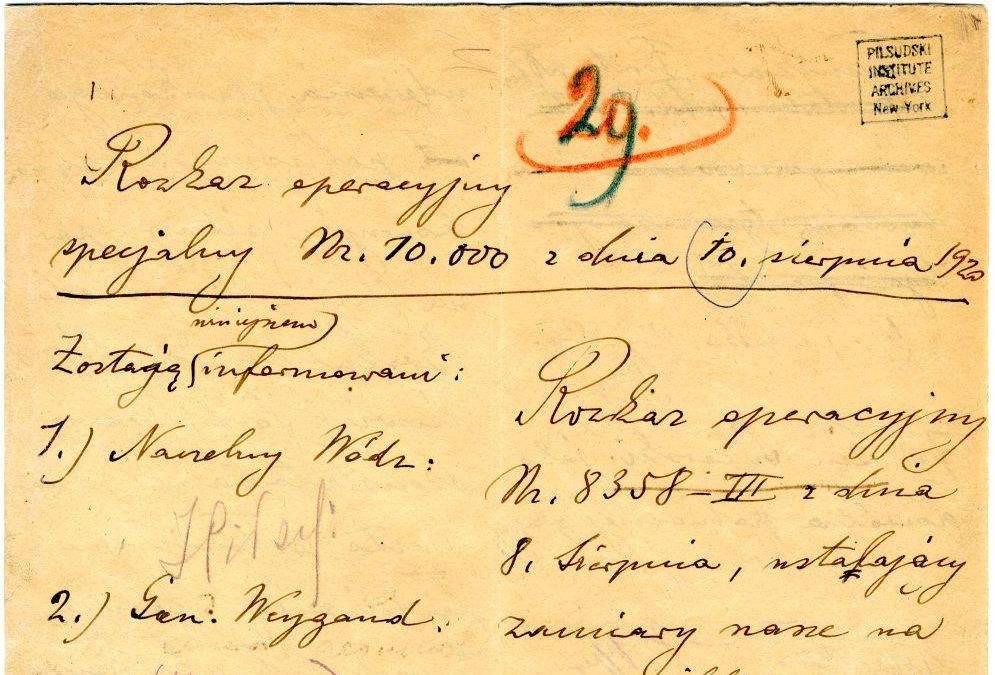 PILSUDSKI
INSTITUTE
ARCHIVES
New-York
29.
Rozkaz operacyjny
specjalny Nr. 10.000 z dnia 10. sierpnia 1920
Zostają niniejszem informowani:
1.) Naczelny Wódz:
2.) Gen. Weygand.
Rozkaz operacyjny
Nr. 8358-III z dnia
8. Sierpnia, ustalający
zamiary nasze na